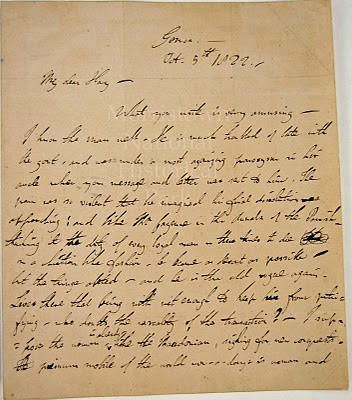 Genoa. —
Oct. 5th 1822. —
My dear Hay —
What you write is very amusing —
I know the man well — He is much troubled of late with
the gout — and was under a most agonizing paroxysm in his
when your message and letter was sent to him. The
pain was so violent that he imagined his final dissolution was
approaching; and like Mr. in the of the
thinking it the duty of every loyal man in these times to die
in a as as possible
but the twinge abated — and he is the old rogue again —
Lives there that being with wit enough to keep him from putri-
fying — who doubts the of the transaction? — I sup-
pose the woman is already like the , sighing for new conquests —
the primum mobile of the world now-a-days is woman and